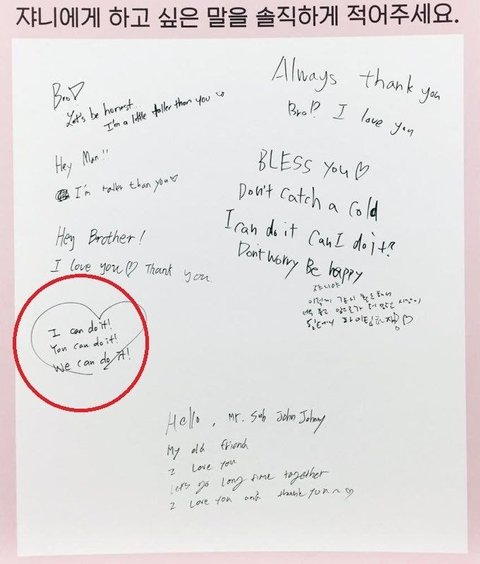 쟈니에게 하고 싶은 말을 솔직하게 적어주세요.
Bro♡
Let's be honest
I'm a little taller than you
Hey Man!!
I'm taller than you♡
Hey Brother!
I love you♡ Thank you
I can do it!
You can do it!
We can do it!
Always thank you
Bro!? I love you
BLESS you♡
Don't catch a cold
I can do it Can I do it?
Don't worry Be happy
쟈니야
이렇게
앞으로가 더 많은
함께해 파이팅 ♡
Hello, Mr. Suh John Johnny
My old friend
I love you
Let's go long time together
I love you and thank you~♡